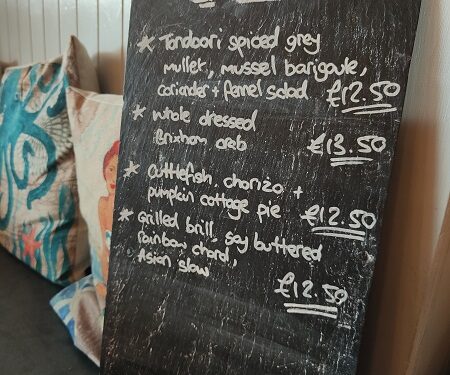 * Tandoori spiced grey
mullet, mussel barigoule,
coriander + fennel salad £12.50
* Whole dressed
Brixham crab £13.50
* Cuttlefish, chorizo +
pumpkin cottage pie £12.50
* Grilled brill, soy buttered
rainbow chard,
Asian slaw
£12.50